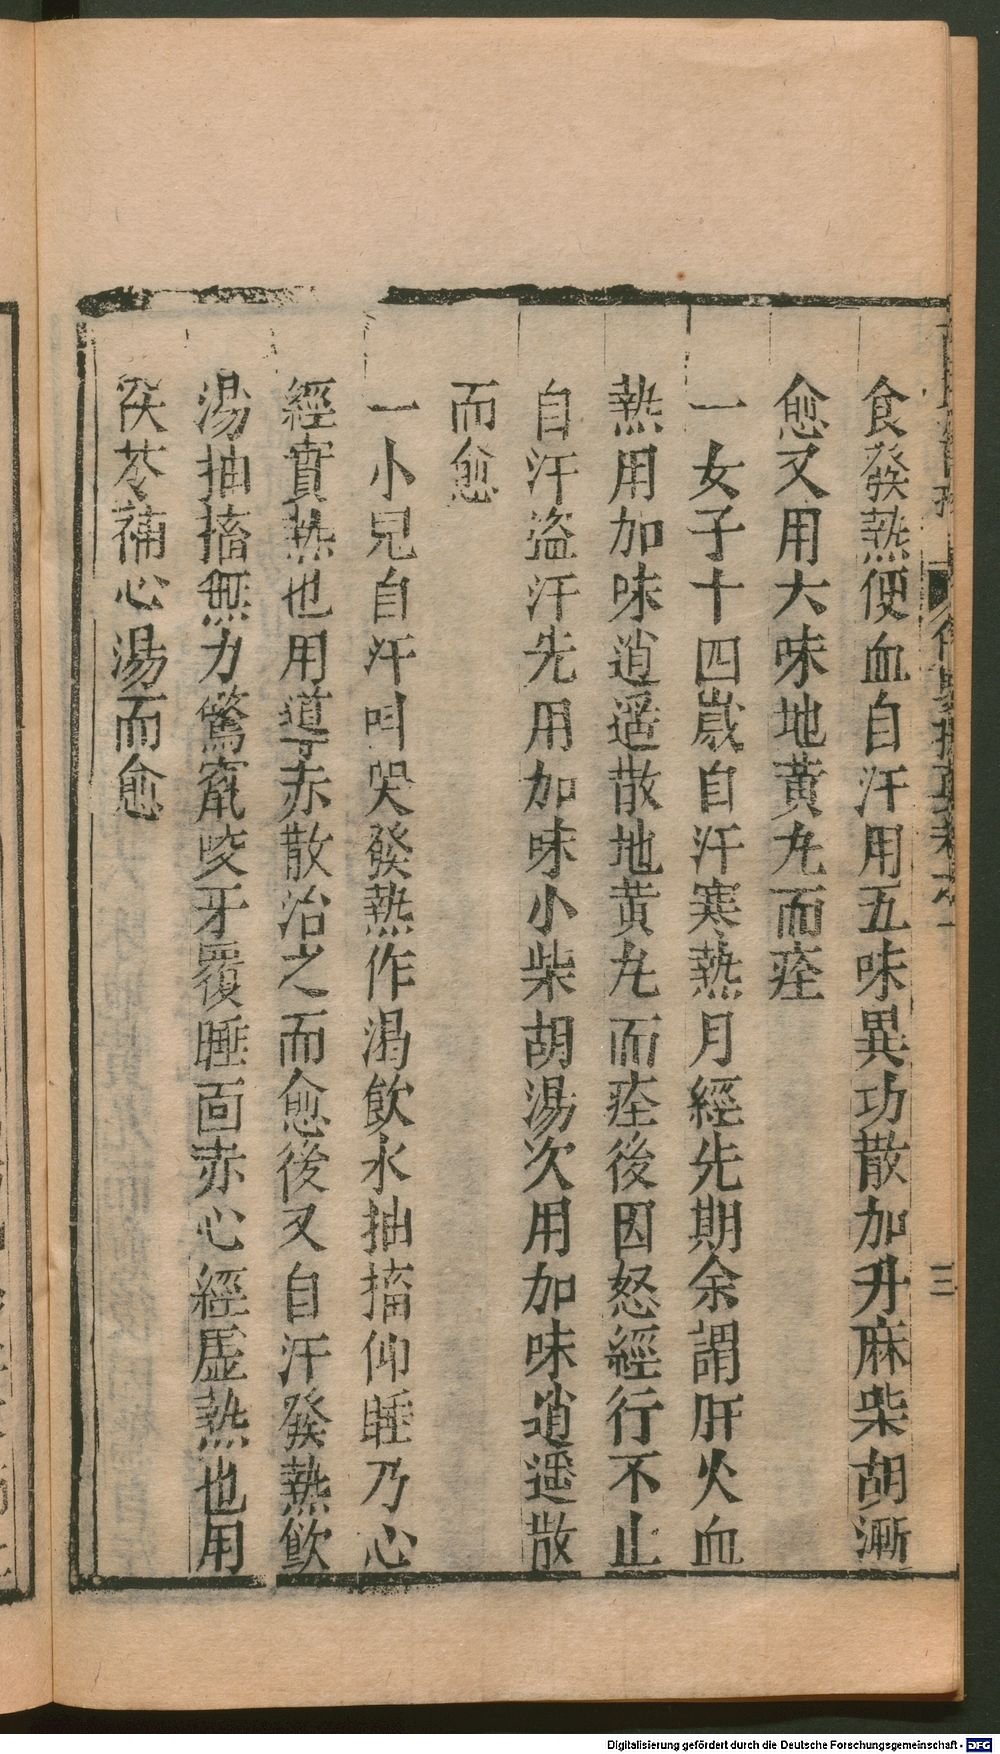 食發熱便血自汗用五味異功散加升麻柴胡漸
愈又用六味地黃丸而痊
一女子十四歲自汗寒熱月經先期余謂肝火血
熱用加味逍遥散地黃丸而痊後因怒經行不止
自汗盜汗先用加味小柴胡湯次用加味逍遥散
而愈
一小兒自汗叫哭發熱作渴飲水抽搐仰睡乃心
經實熱也用導赤散治之而愈後又自汗發熱飲
湯抽搐無力驚竄咬牙覆睡面赤心經虛熱也用
茯苓補心湯而愈
三
Digitalisierung gefördert durch die Deutsche Forschungsgemeinschaft - DFG